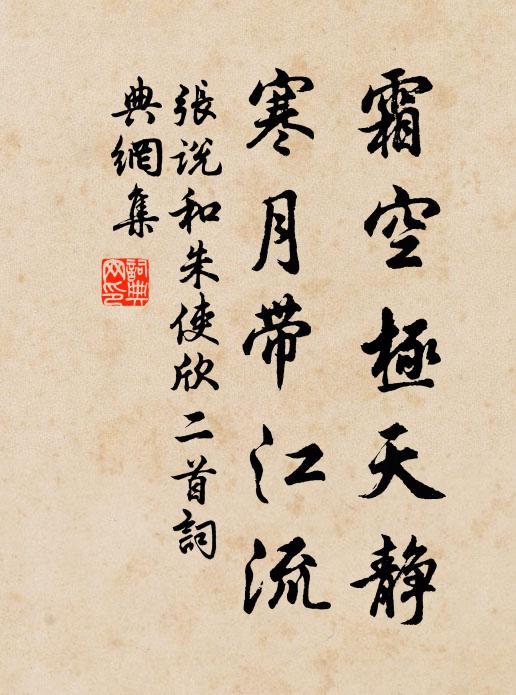 霜空極天静
寒月帶江流
張說和朱使欣二首詞
典網集
詞典网印